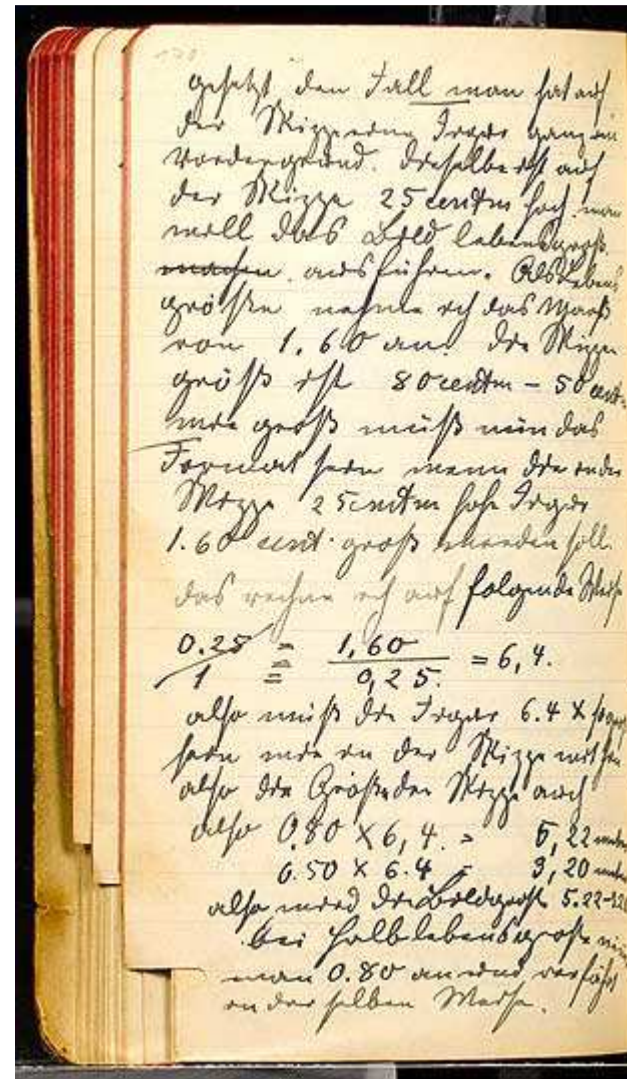 170
gesetzt den Fall man hat auf
der Skizze eine Figur ganz im
Vordergrund. Dieselbe ist auf
der Skizze 25 centm hoch man
will das Bild lebensgroß
machen ausführen. Als Lebens
größe nehme ich das Maaß
von 1.60 an. die Skizzen
größe ist 80 centm - 50 centm
wie groß muß nun das
Format sein wenn die in der
Skizze 25 centm hohe Figur
1.60 cent. groß werden soll.
das rechne ich auf folgende Weise
0.25 = 1,60 = 6,4.
1 = 0,25.
also muß die Figur 6.4 X so groß
sein wie in der Skizze mithin
also die Größe der Skizze auch
also 0.80 X 6,4. = 5,22
0.50 X 6.4 = 3,20
also wird die Bildgröße 5.22-3.20
bei halblebensgroße
man 0.80 an und verfährt
in der selben Weise.